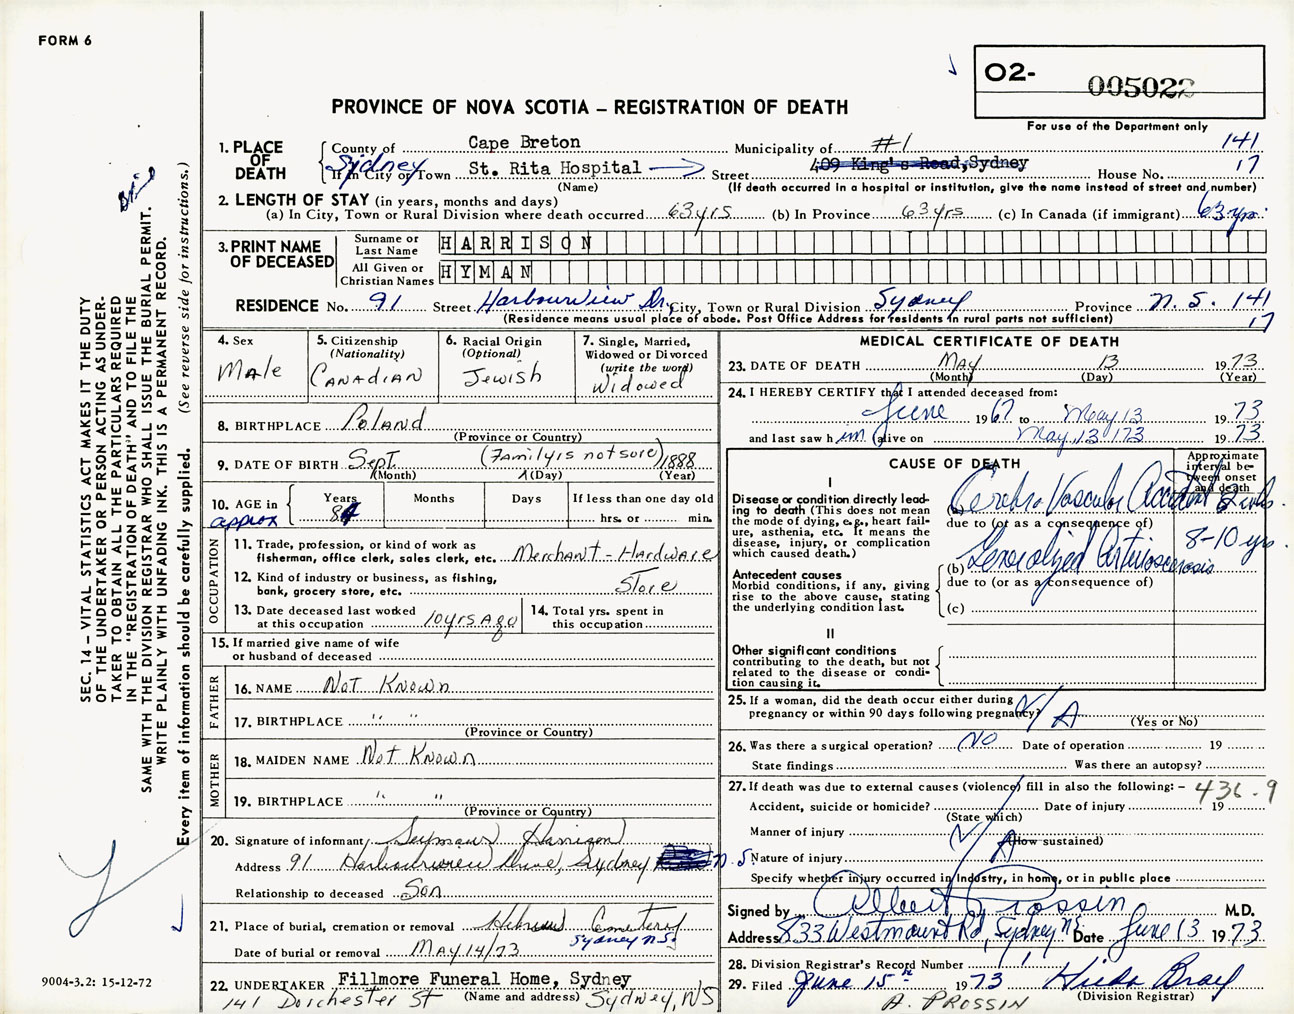 FORM 6
O2- 005022
For use of the Department only
PROVINCE OF NOVA SCOTIA – REGISTRATION OF DEATH
1. PLACE OF DEATH
County of Cape Breton Municipality of #1 141
If in City or Town Sydney St. Rita Hospital Street 409 King's Road, Sydney House No. 17
(Name) (If death occurred in a hospital or institution, give the name instead of street and number)
2. LENGTH OF STAY (in years, months and days)
(a) In City, Town or Rural Division where death occurred 63 yrs (b) In Province 63 yrs (c) In Canada (if immigrant) 63 yrs.
3. PRINT NAME OF DECEASED
Surname or Last Name HARRISON
All Given or Christian Names HYMAN
RESIDENCE No. 91 Street Harbourview Dr. City, Town or Rural Division Sydney Province N.S. 141
(Residence means usual place of abode. Post Office Address for residents in rural parts not sufficient) 17
4. Sex Male
5. Citizenship (Nationality) Canadian
6. Racial Origin (Optional) Jewish
7. Single, Married, Widowed or Divorced (write the word) Widowed
8. BIRTHPLACE Poland
(Province or Country)
9. DATE OF BIRTH Sept. (Family is not sure) 1888
(Month) (Day) (Year)
10. AGE in approx Years 84 Months Days If less than one day old hrs. or min.
OCCUPATION
11. Trade, profession, or kind of work as fisherman, office clerk, sales clerk, etc. Merchant - Hardware
12. Kind of industry or business, as fishing, bank, grocery store, etc. Store
13. Date deceased last worked at this occupation 10 yrs. Ago
14. Total yrs. spent in this occupation
15. If married give name of wife or husband of deceased
FATHER
16. NAME Not Known
17. BIRTHPLACE " "
(Province or Country)
MOTHER
18. MAIDEN NAME Not Known
19. BIRTHPLACE " "
(Province or Country)
20. Signature of informant Seymour Harrison
Address 91 Harbourview Drive, Sydney N.S.
Relationship to deceased Son
21. Place of burial, cremation or removal Hebrew Cemetery
Sydney N.S.
Date of burial or removal MAY 14/73
22. UNDERTAKER Fillmore Funeral Home, Sydney
(Name and address)
141 Dorchester St Sydney, NS
MEDICAL CERTIFICATE OF DEATH
23. DATE OF DEATH May 13 1973
(Month) (Day) (Year)
24. I HEREBY CERTIFY that I attended deceased from:
June 1967 to May 13 1973
and last saw him alive on May 13 173 1973
CAUSE OF DEATH
Approximate interval between onset and death
I
Disease or condition directly leading to death (This does not mean the mode of dying, e.g., heart failure, asthenia, etc. It means the disease, injury, or complication which caused death.)
(a) Cerebro Vascular Accident
due to (or as a consequence of)
Antecedent causes
Morbid conditions, if any, giving rise to the above cause, stating the underlying condition last.
(b) Generalized Arteriosclerosis 8-10 yrs.
due to (or as a consequence of)
(c)
II
Other significant conditions
contributing to the death, but not related to the disease or condition causing it.
25. If a woman, did the death occur either during pregnancy or within 90 days following pregnancy? N/A
(Yes or No)
26. Was there a surgical operation? No Date of operation 19
State findings Was there an autopsy?
27. If death was due to external causes (violence) fill in also the following: – 436.9
Accident, suicide or homicide? Date of injury 19
(State which)
Manner of injury N/A
(How sustained)
Nature of injury
Specify whether injury occurred in Industry, in home, or in public place
Signed by Albert Prossin M.D.
Address 833 Westmount Rd, Sydney NS Date June 13 1973
28. Division Registrar's Record Number
29. Filed June 15th 1973 Hilda Bray
(Division Registrar)
A. PROSSIN
SEC. 14 – VITAL STATISTICS ACT MAKES IT THE DUTY
OF THE UNDERTAKER OR PERSON ACTING AS UNDER-
TAKER TO OBTAIN ALL THE PARTICULARS REQUIRED
IN THE "REGISTRATION OF DEATH" AND TO FILE THE
SAME WITH THE DIVISION REGISTRAR WHO SHALL ISSUE THE BURIAL PERMIT.
WRITE PLAINLY WITH UNFADING INK. THIS IS A PERMANENT RECORD.
Every item of information should be carefully supplied. (See reverse side for instructions.)
9004-3.2: 15-12-72